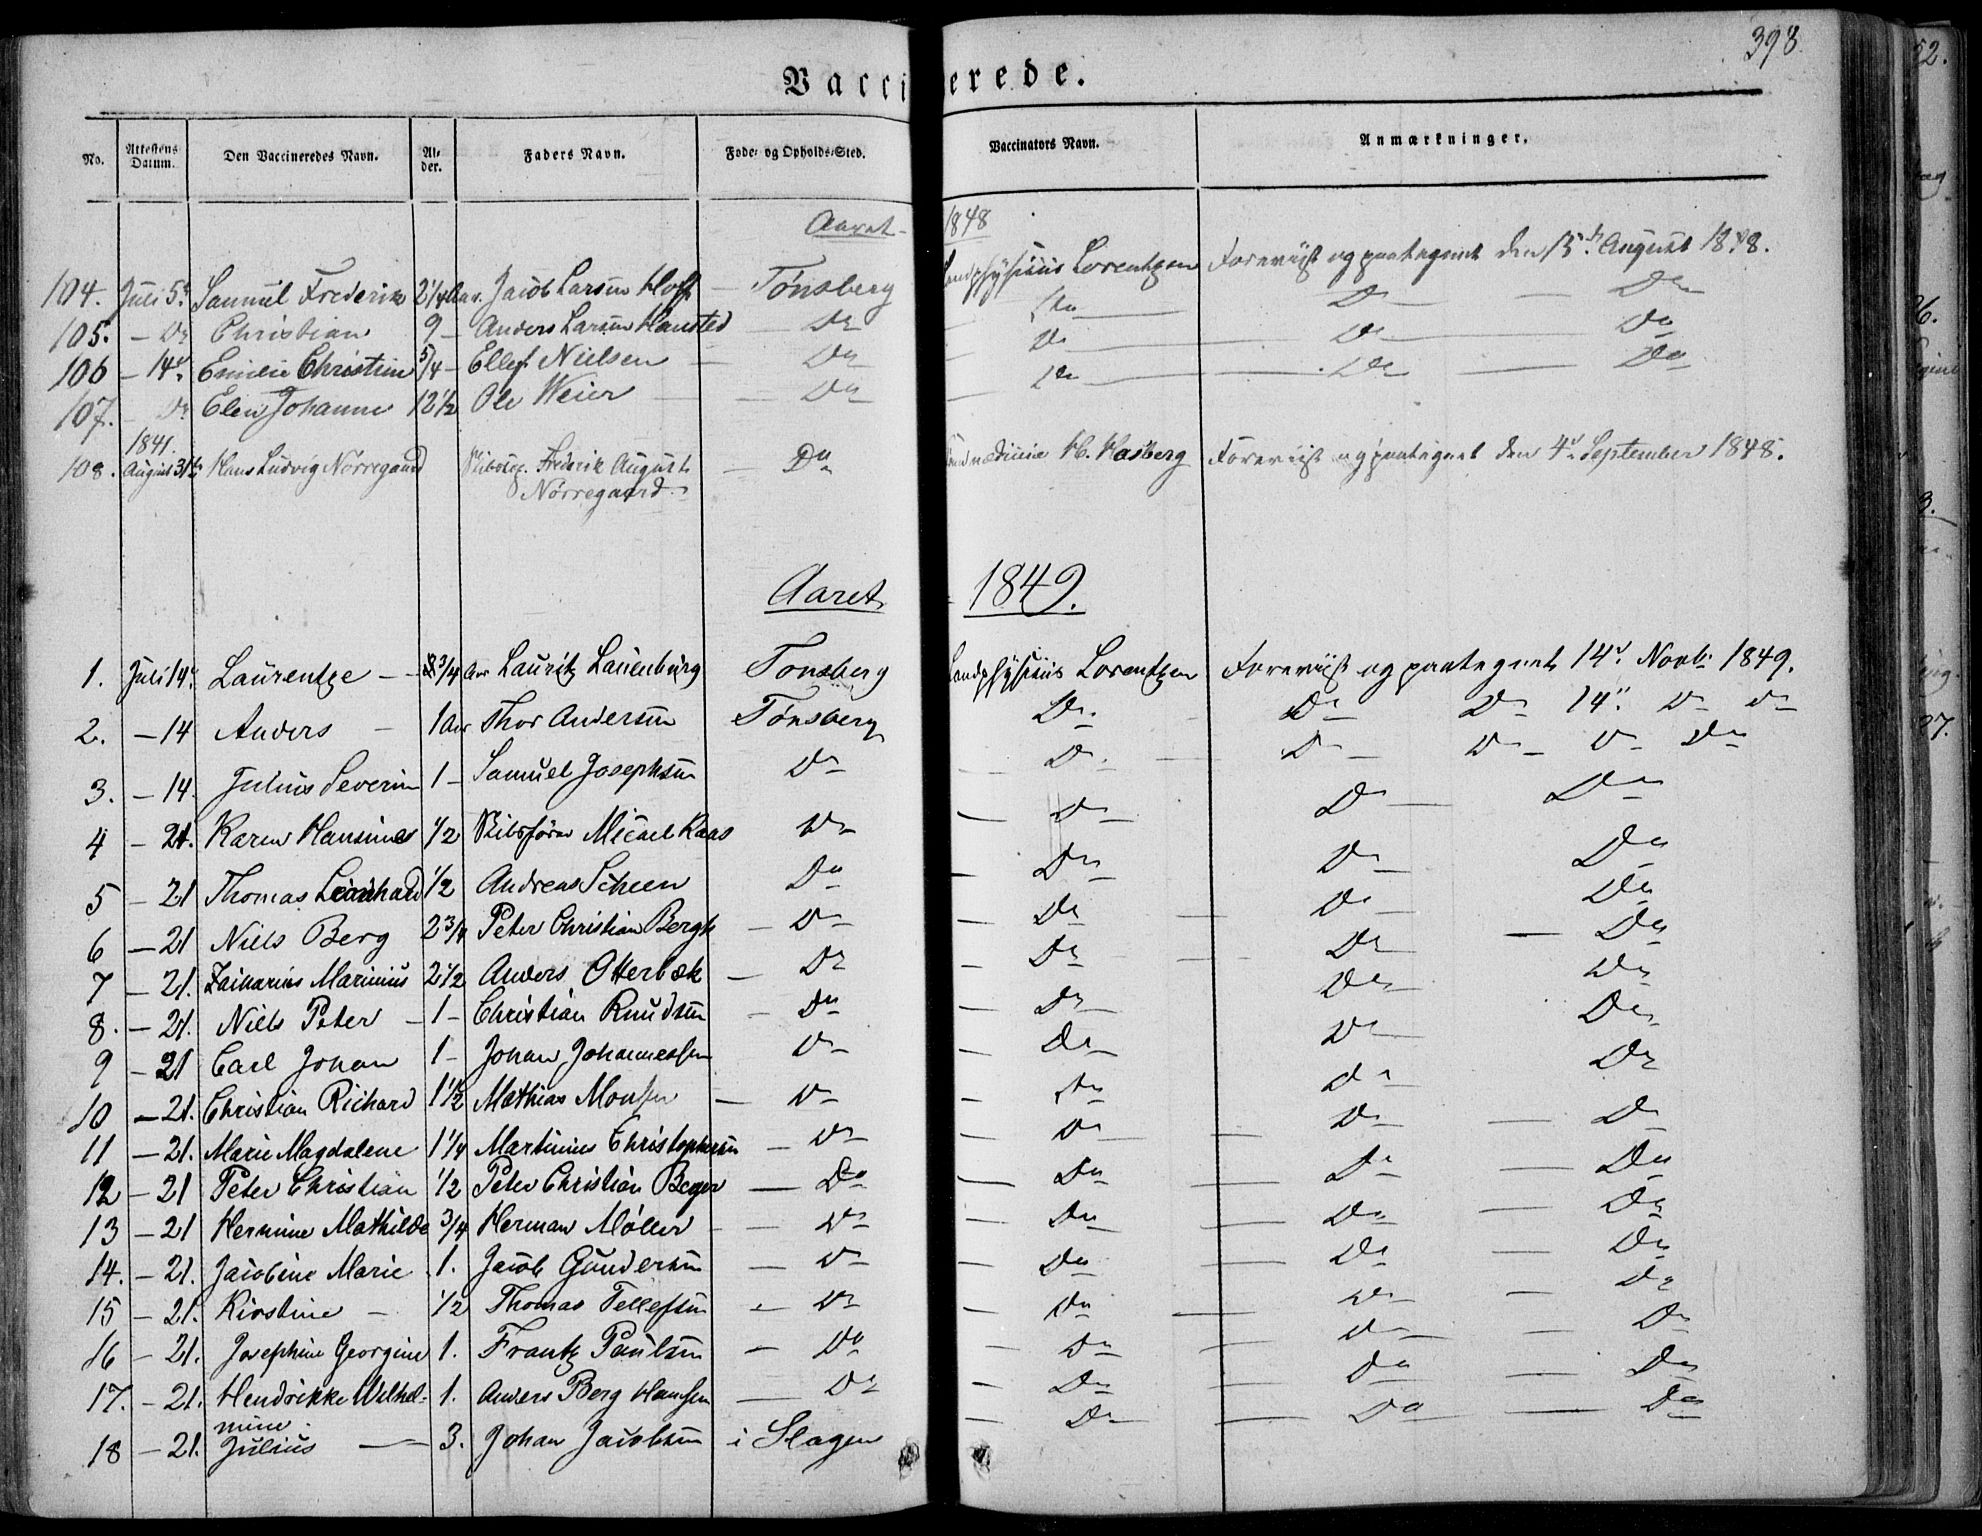 398
Vaccinerede.
No. Attestens Datum. Den Vaccineredes Navn. Alder. Faders Navn. Føde- og Opholds-Sted. Vaccinators Navn. Anmærkninger.
Aaret 1848
104. Juli 5te Samuel Frederik 2 1/4 Aar. Jacob Larsen Hoff – Tønsberg Landphysicus Lorentzen Foreviist og paategnet den 15de August 1848.
105. – Do Christian 9 – Anders Larsen Hansted – Do Do Do Do
106 – 14de Emilie Christine 5/4 – Ellef Nielsen – Do Do Do Do
107. – Do Elen Johanne 12 1/2 Ole Weier – Do Do Do Do
1841.
108. August 31te Hans Ludvig Nørregaard Frederik August Nørregaard. – Do H. Hasberg Foreviist og paategnet den 4de September 1848.
Aaret 1849.
1. Juli 14de Laurentze – 3/4 Aar Lauritz Lauenburg Tonsberg Landphysicus Lorentzen Foreviist og paategnet 14de Novbr 1849.
2. – 14 Anders – 1 Aar Thor Andersen Tønsberg Do Do Do 14de Do Do
3. – 14. Julius Severin 1 – Samuel Josephsen Do Do Do Do Do Do
4 – 21. Karen Hansine 1/2 Skibsfører Michel Kaas Do Do Do Do
5 – 21 Thomas Leonhard 1/2 Andreas Scheen Do Do Do Do
6 – 21 Niels Berg 2 3/4 Peter Christian Bergh – Do Do Do Do
7 – 21. Zacharias Marinius 2 1/2 Anders Otterbæk – Do Do Do Do
8. – 21. Niels Peter – 1 – Christian Knudsen – Do Do Do Do
9 – 21 Carl Johan 1 – Johan Johannessen Do Do Do Do
10 – 21. Christian Richard 1 1/2 Mathias Monsen – Do Do Do Do
11 – 21. Marie Magdalene 1 1/4 Martinius Christophersen – Do Do Do Do
12 – 21 Peter Christian 1/2 Peter Christian Beyer – Do Do Do Do
13 – 21 Hermine Mathilde 3/4 Herman Møller – Do Do Do Do
14. – 21. Jacobine Marie 1. Jacob Gundersen – Do Do Do Do
15 – 21. Kirstine – 1/2 Thomas Tellefsen – Do Do Do Do
16 – 21. Josephine Georgine 1. Frantz Paulsen – Do Do Do Do
17. – 21. Hendrikke Wilhel- 1. Anders Berg Hansen – Do Do Do Do
mine.
18 – 21. Julius – 3. Johan Jacobsen i Slagen Do Do Do